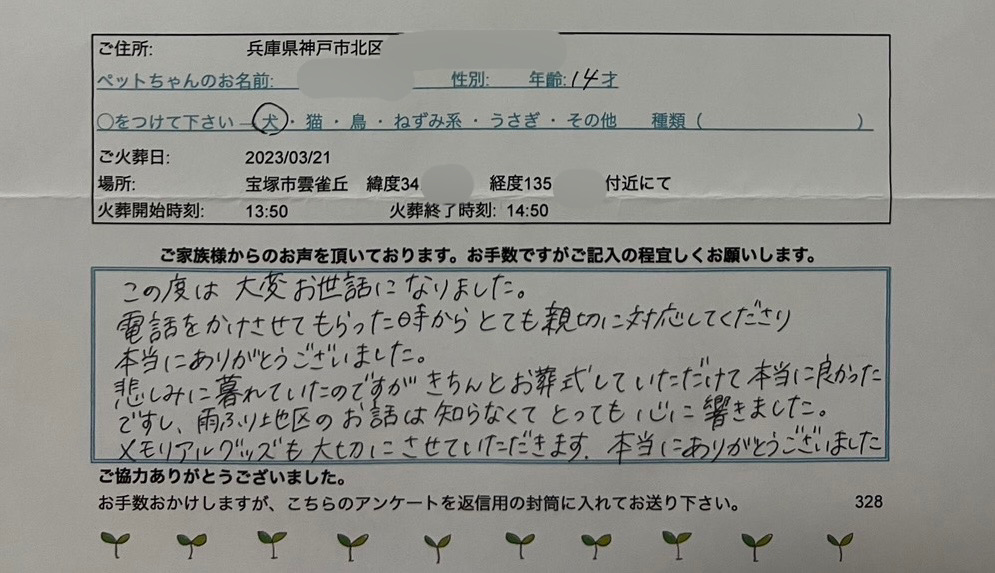 ご住所: 兵庫県神戸市北区
ペットちゃんのお名前: 性別: 年齢: 14才
○をつけて下さい — 犬 ・ 猫 ・ 鳥 ・ ねずみ系 ・ うさぎ ・ その他 種類 ( )
ご火葬日: 2023/03/21
場所: 宝塚市雲雀丘 緯度34. 経度135 付近にて
火葬開始時刻: 13:50 火葬終了時刻: 14:50
ご家族様からのお声を頂いております。お手数ですがご記入の程宜しくお願いします。
この度は 大変お世話になりました。
電話をかけさせてもらった時からとても親切に対応してくださり
本当にありがとうございました。
悲しみに暮れていたのですがきちんとお葬式していただけて本当に良かった
ですし、雨ふり地区のお話は知らなくてとっても心に響きました。
メモリアルグッズも大切にさせていただきます. 本当にありがとうございました
ご協力ありがとうございました。
お手数おかけしますが、こちらのアンケートを返信用の封筒に入れてお送り下さい。 328